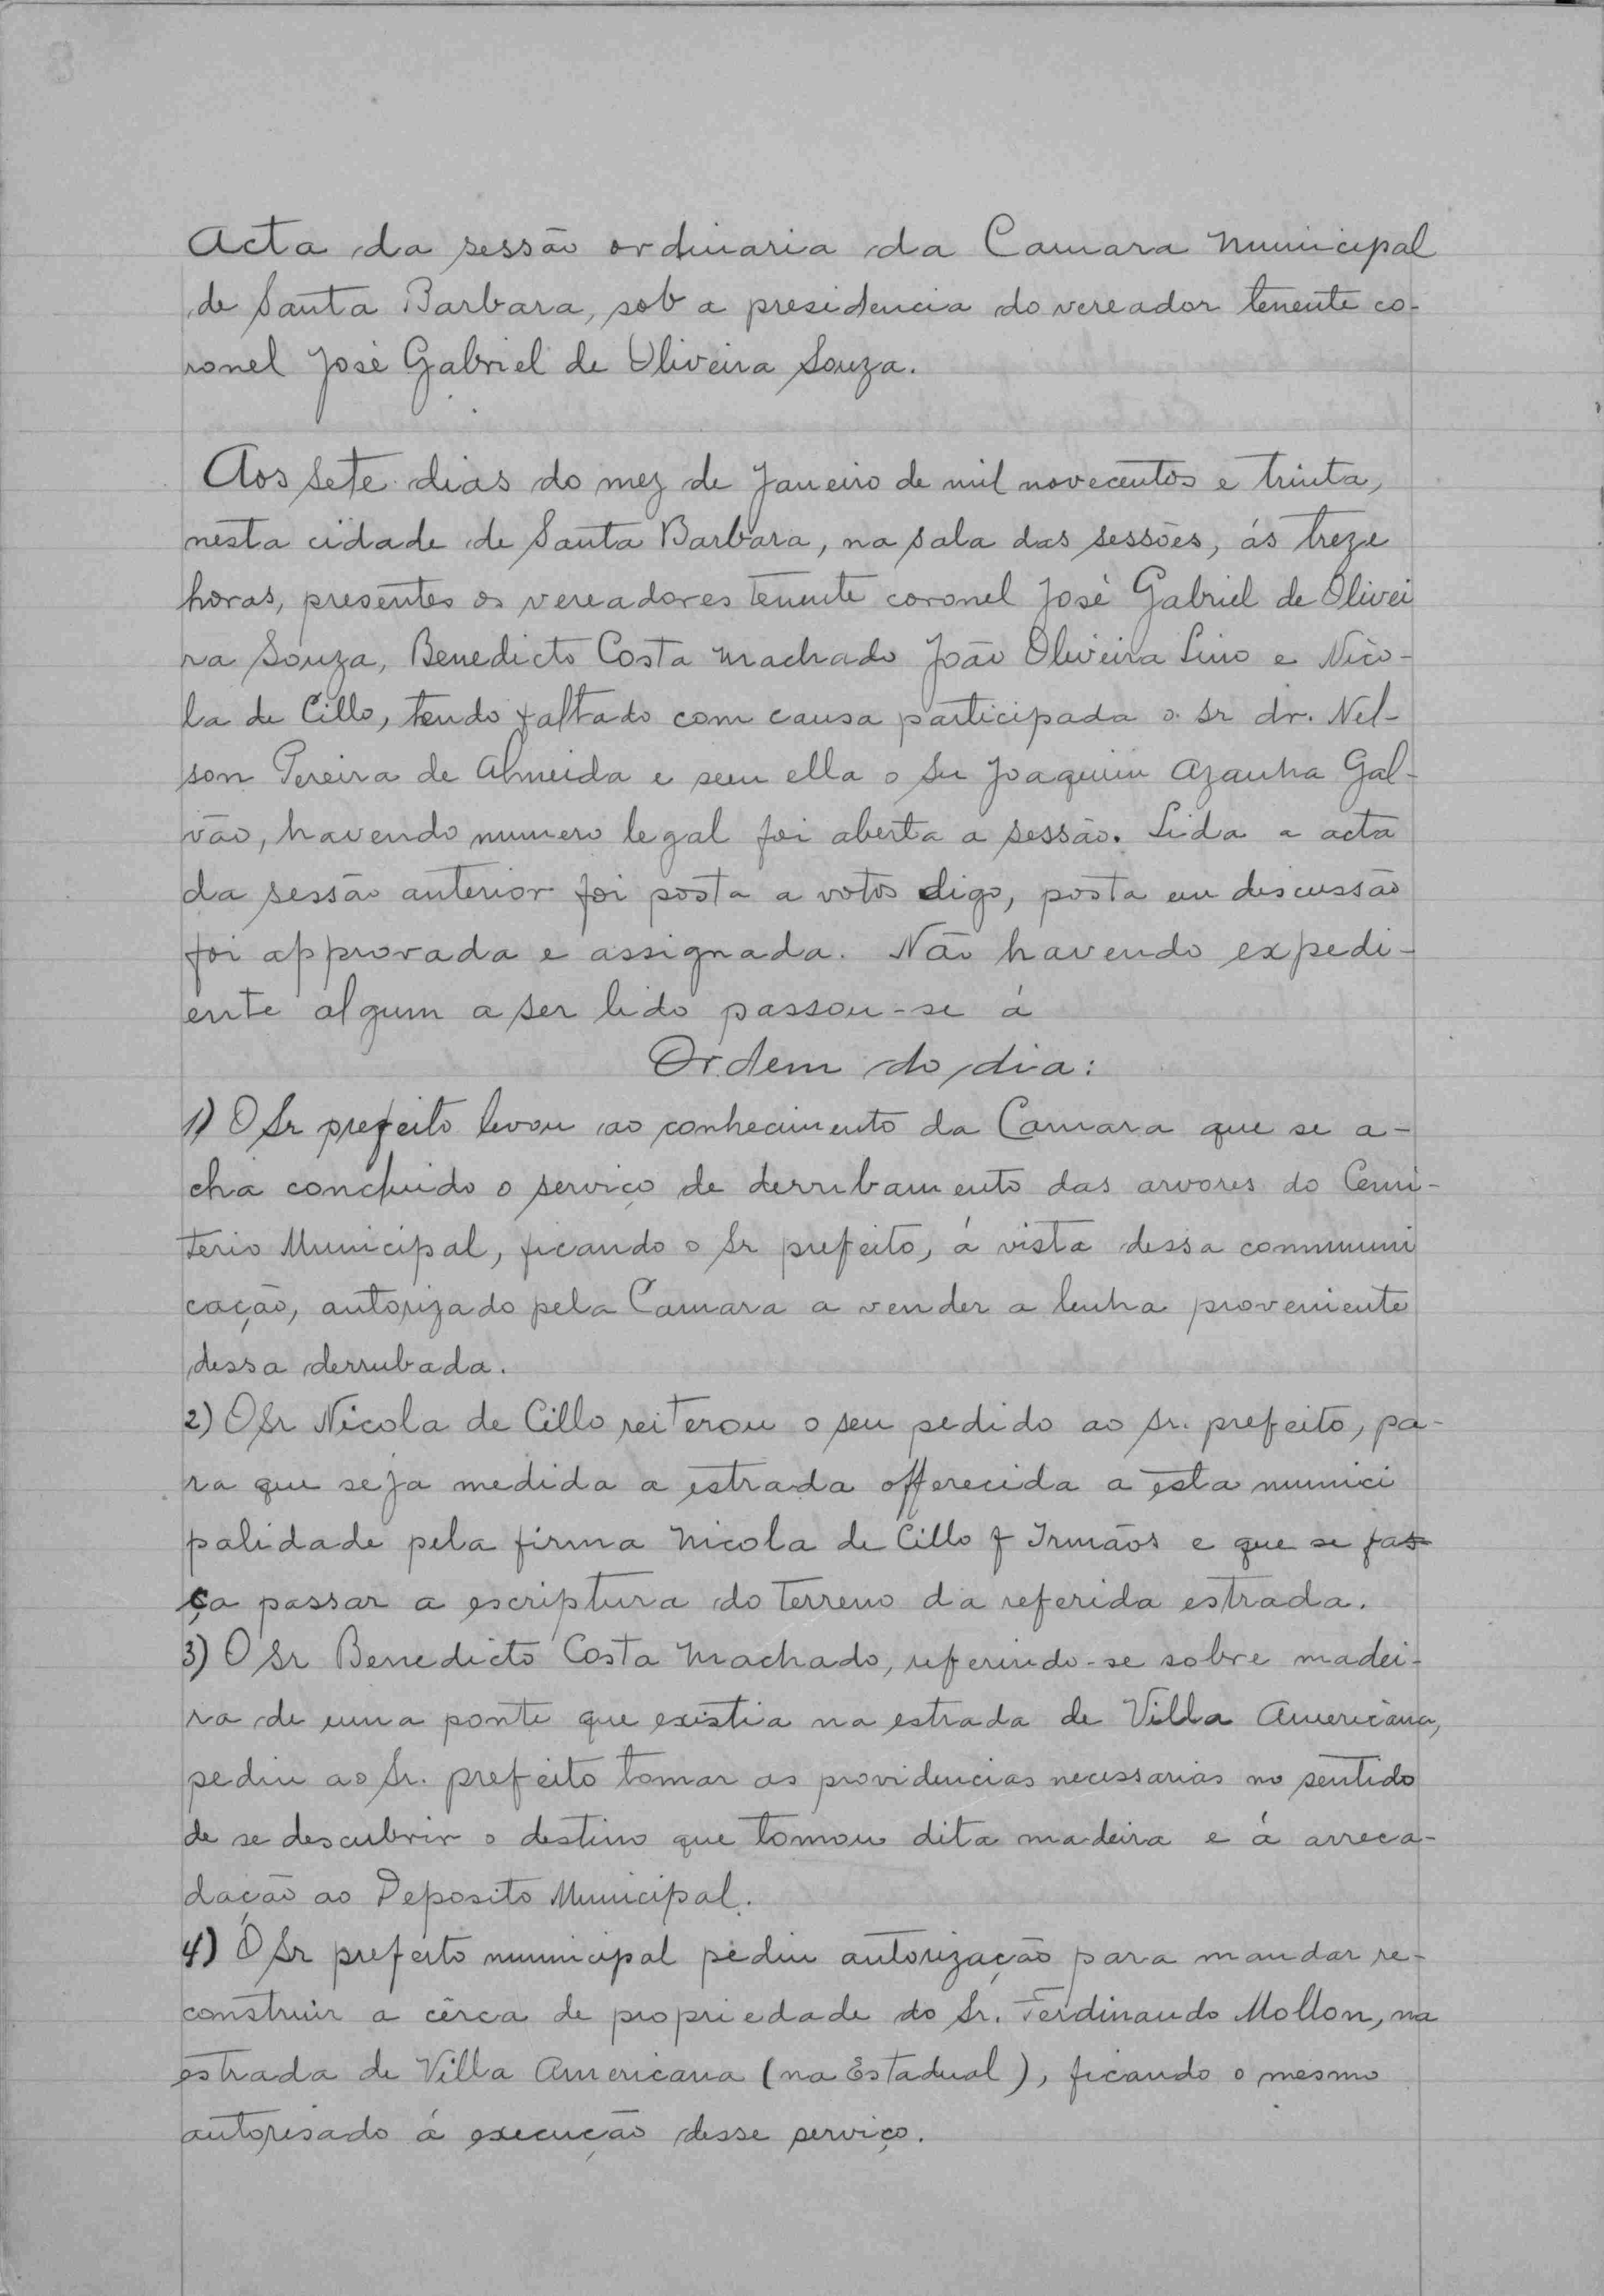 Acta da sessão ordinaria da Camara Municipal
de Santa Barbara, sob a presidencia do vereador tenente co-
ronel José Gabriel de Oliveira Souza.
Aos sete dias do mez de Janeiro de mil novecentos e trinta,
nesta cidade de Santa Barbara, na sala das sessões, ás treze
horas, presentes os vereadores tenente coronel José Gabriel de Olivei
ra Souza, Benedicto Costa Machado João Oliveira Lino e Nico-
la de Cillo, tendo faltado com causa participada o Sr dr. Nel-
son Pereira de Almeida e sem ella o Snr Joaquim Azanha Gal-
vão, havendo numero legal foi aberta a sessão. Lida a acta
da sessão anterior foi posta a votos digo, posta em discussão
foi approvada e assignada. Não havendo expedi-
ente algum a ser lido passou-se á
Ordem do dia:
1) O Sr prefeito levou ao conhecimento da Camara que se a-
cha concluido o serviço de derrubamento das arvores do Cemi-
terio Municipal, ficando o Sr prefeito, á vista dessa communi
cação, autorizado pela Camara a vender a lenha proveniente
dessa derrubada.
2) O Sr Nicola de Cillo reiterou o seu pedido ao Sr. prefeito, pa-
ra que seja medida a estrada offerecida a esta munici
palidade pela firma Nicola de Cillo & Irmãos e que se fas
ça passar a escriptura do terreno da referida estrada.
3) O Sr Benedicto Costa Machado, referindo-se sobre madei-
ra de uma ponte que existia na estrada de Villa Americana,
pediu ao Sr. prefeito tomar as providencias necessarias no sentido
de se descubrir o destino que tomou dita madeira e á arreca-
dação ao Deposito Municipal.
4) O Sr prefeito municipal pediu autorização para mandar re-
construir a cêrca de propriedade do Sr. Ferdinando Mollon, na
estrada de Villa Americana (na Estadual), ficando o mesmo
autorisado á execução desse serviço.